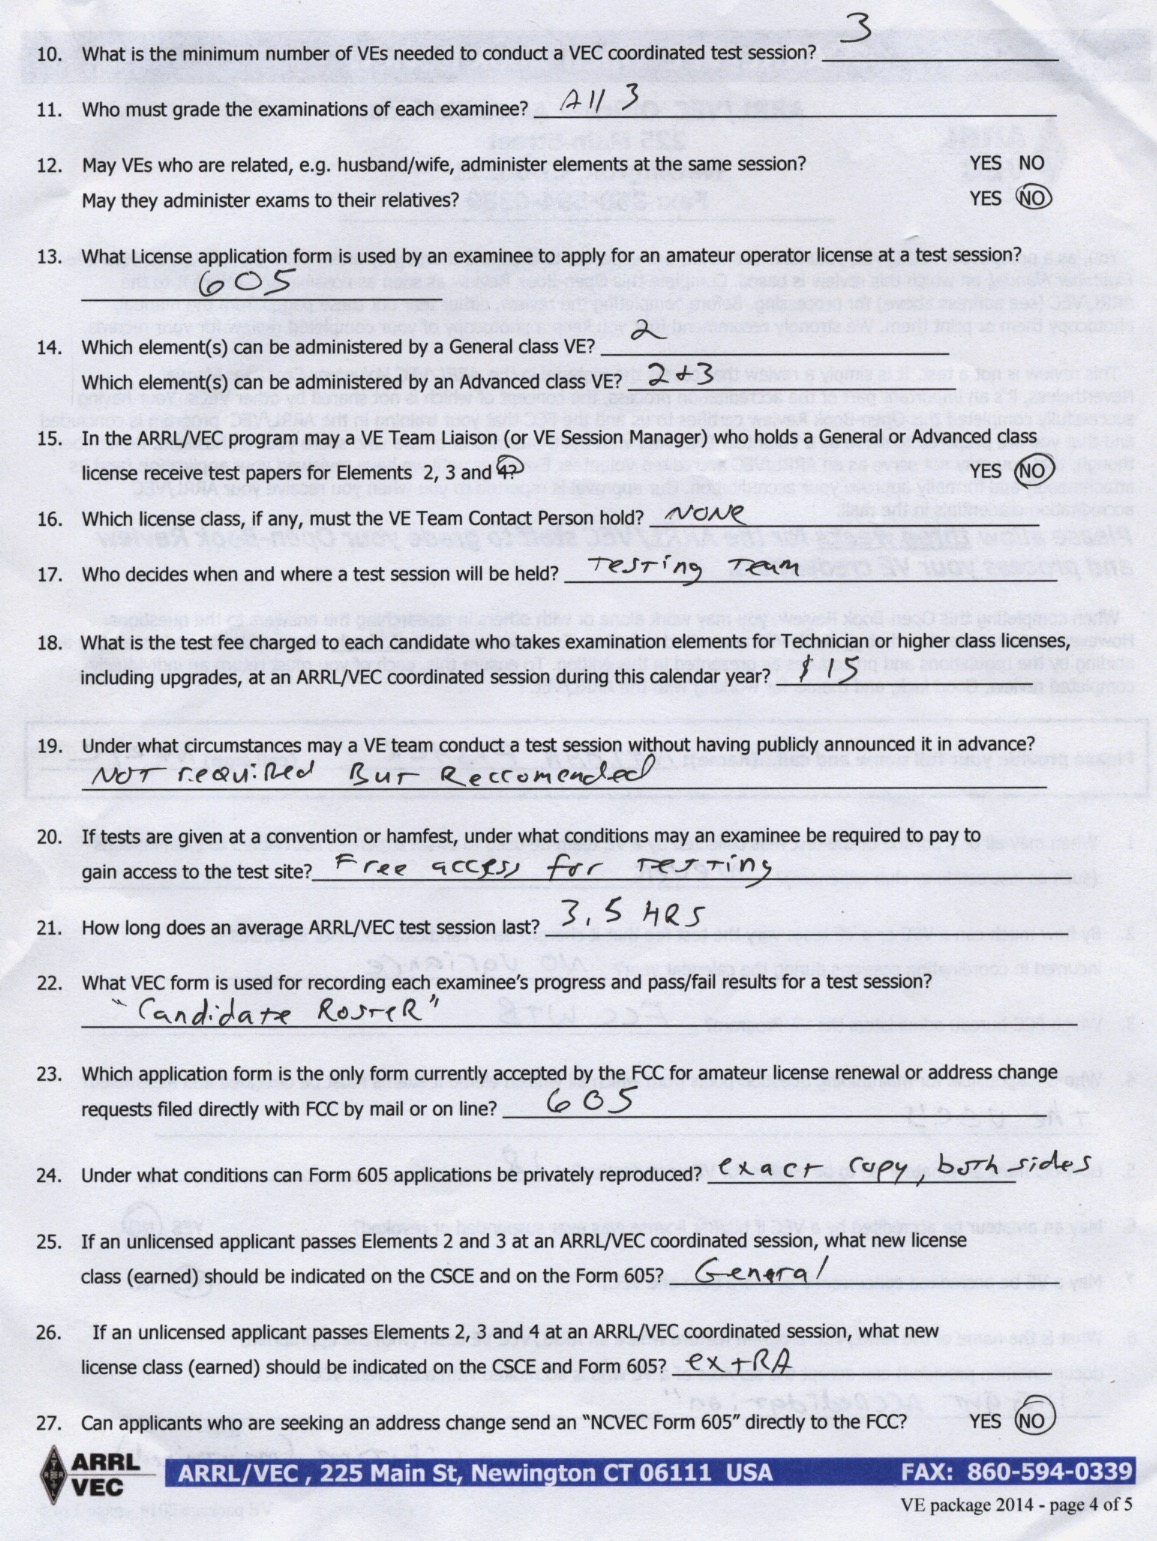 10. What is the minimum number of VEs needed to conduct a VEC coordinated test session? 3
11. Who must grade the examinations of each examinee? All 3
12. May VEs who are related, e.g. husband/wife, administer elements at the same session? YES NO
May they administer exams to their relatives? YES NO
13. What License application form is used by an examinee to apply for an amateur operator license at a test session?
605
14. Which element(s) can be administered by a General class VE? 2
Which element(s) can be administered by an Advanced class VE? 2+3
15. In the ARRL/VEC program may a VE Team Liaison (or VE Session Manager) who holds a General or Advanced class
license order test papers for Elements 2, 3 and 4? YES NO
16. Which license class, if any, must the VE Team Contact Person hold? NONE
17. Who decides when and where a test session will be held? Testing Team
18. What is the test fee charged to each candidate who takes examination elements for Technician or higher class licenses,
including upgrades, at an ARRL/VEC coordinated session during this calendar year? $15
19. Under what circumstances may a VE team conduct a test session without having publicly announced it in advance?
NOT required But Reccomended
20. If tests are given at a convention or hamfest, under what conditions may an examinee be required to pay to
gain access to the test site? Free access for Testing
21. How long does an average ARRL/VEC test session last? 3.5 HRS
22. What VEC form is used for recording each examinee's progress and pass/fail results for a test session?
"Candidate RosteR"
23. Which application form is the only form currently accepted by the FCC for amateur license renewal or address change
requests filed directly with FCC by mail or on line? 605
24. Under what conditions can Form 605 applications be privately reproduced? exact copy, both sides
25. If an unlicensed applicant passes Elements 2 and 3 at an ARRL/VEC coordinated session, what new license
class (earned) should be indicated on the CSCE and on the Form 605? General
26. If an unlicensed applicant passes Elements 2, 3 and 4 at an ARRL/VEC coordinated session, what new
license class (earned) should be indicated on the CSCE and Form 605? extRA
27. Can applicants who are seeking an address change send an "NCVEC Form 605" directly to the FCC? YES NO
ARRL
VEC
ARRL/VEC , 225 Main St, Newington CT 06111 USA FAX: 860-594-0339
VE package 2014 - page 4 of 5